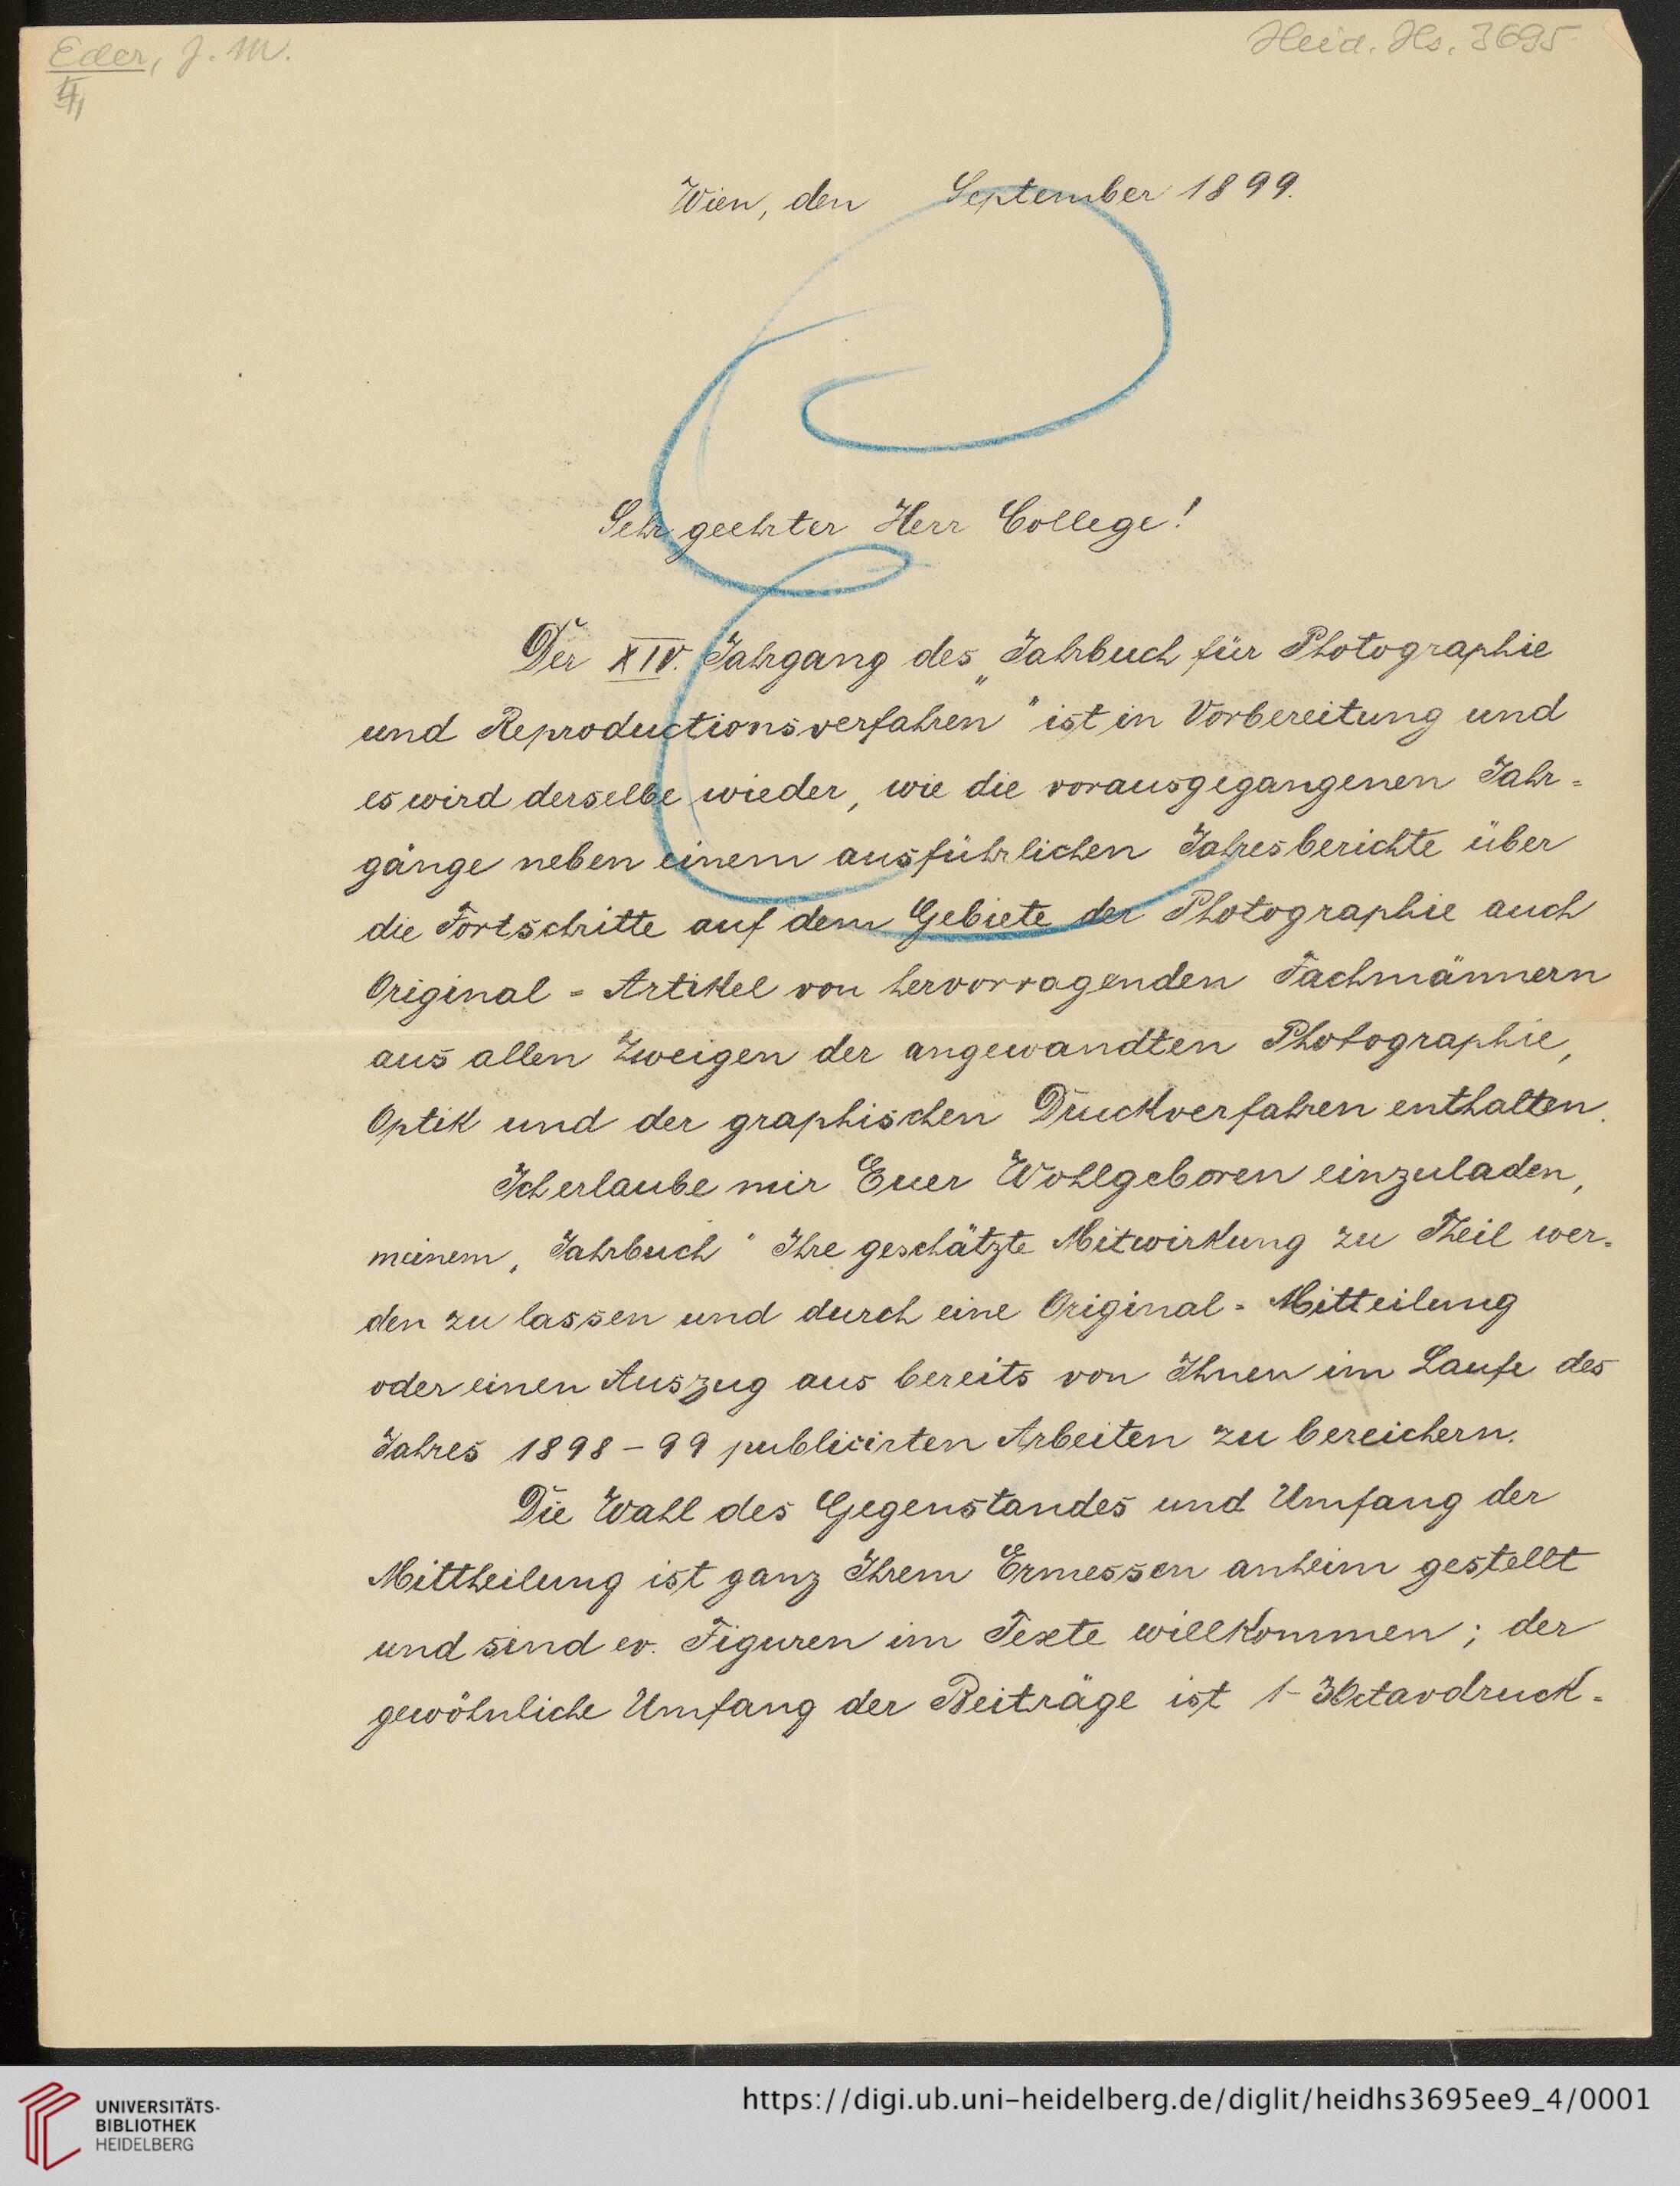 Eder, J. M.
4
Heid. Hs. 3695
Wien, den September 1899.
Sehr geehrter Herr College!
Der XIV. Jahrgang des „Jahrbuch für Photographie
und Reproductionsverfahren" ist in Vorbereitung und
es wird derselbe wieder, wie die vorausgegangenen Jahr=
gänge neben einem ausführlichen Jahresberichte über
die Fortschritte auf dem Gebiete der Photographie auch
Original=Artikel von hervorragenden Fachmännern
aus allen Zweigen der angewandten Photographie,
Optik und der graphischen Druckverfahren enthalten.
Ich erlaube mir Euer Wohlgeboren einzuladen,
meinem „Jahrbuch" Ihre geschätzte Mitwirkung zu Theil wer=
den zu lassen und durch eine Original=Mitteilung
oder einen Auszug aus bereits von Ihnen im Laufe des
Jahres 1898–99 publicirten Arbeiten zu bereichern.
Die Wahl des Gegenstandes und Umfang der
Mittheilung ist ganz Ihrem Ermessen anheim gestellt
und sind ev. Figuren im Texte willkommen; der
gewöhnliche Umfang der Beiträge ist 1–3 Octavdruck=
UNIVERSITÄTS-
BIBLIOTHEK
HEIDELBERG
https://digi.ub.uni-heidelberg.de/diglit/heidhs3695ee9_4/0001